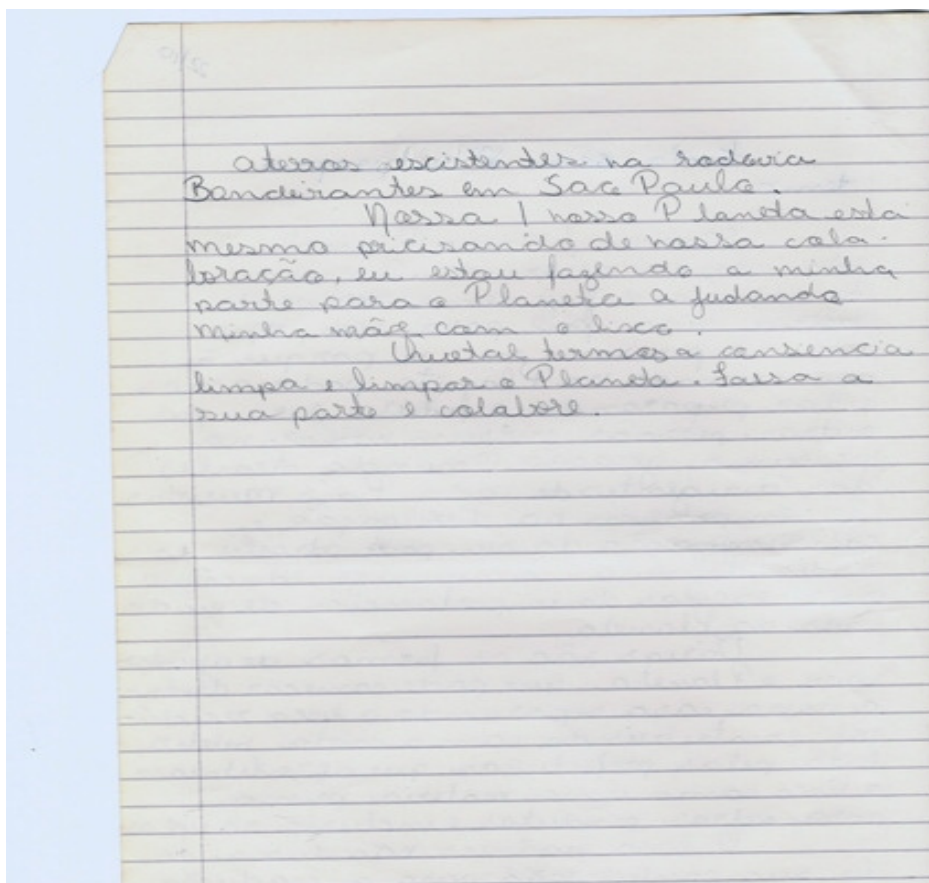 aterros escistentes na rodovia
Bandeirantes em Sao Paulo.
Nossa! nosso Planeta esta
mesmo pricisando de nossa cola-
boração, eu estou fazendo a minha
parte para o Planeta a judando
minha mãe com o lixo.
Que tal termos a consiencia
limpa e limpar o Planeta. Fassa a
sua parte e colabore.